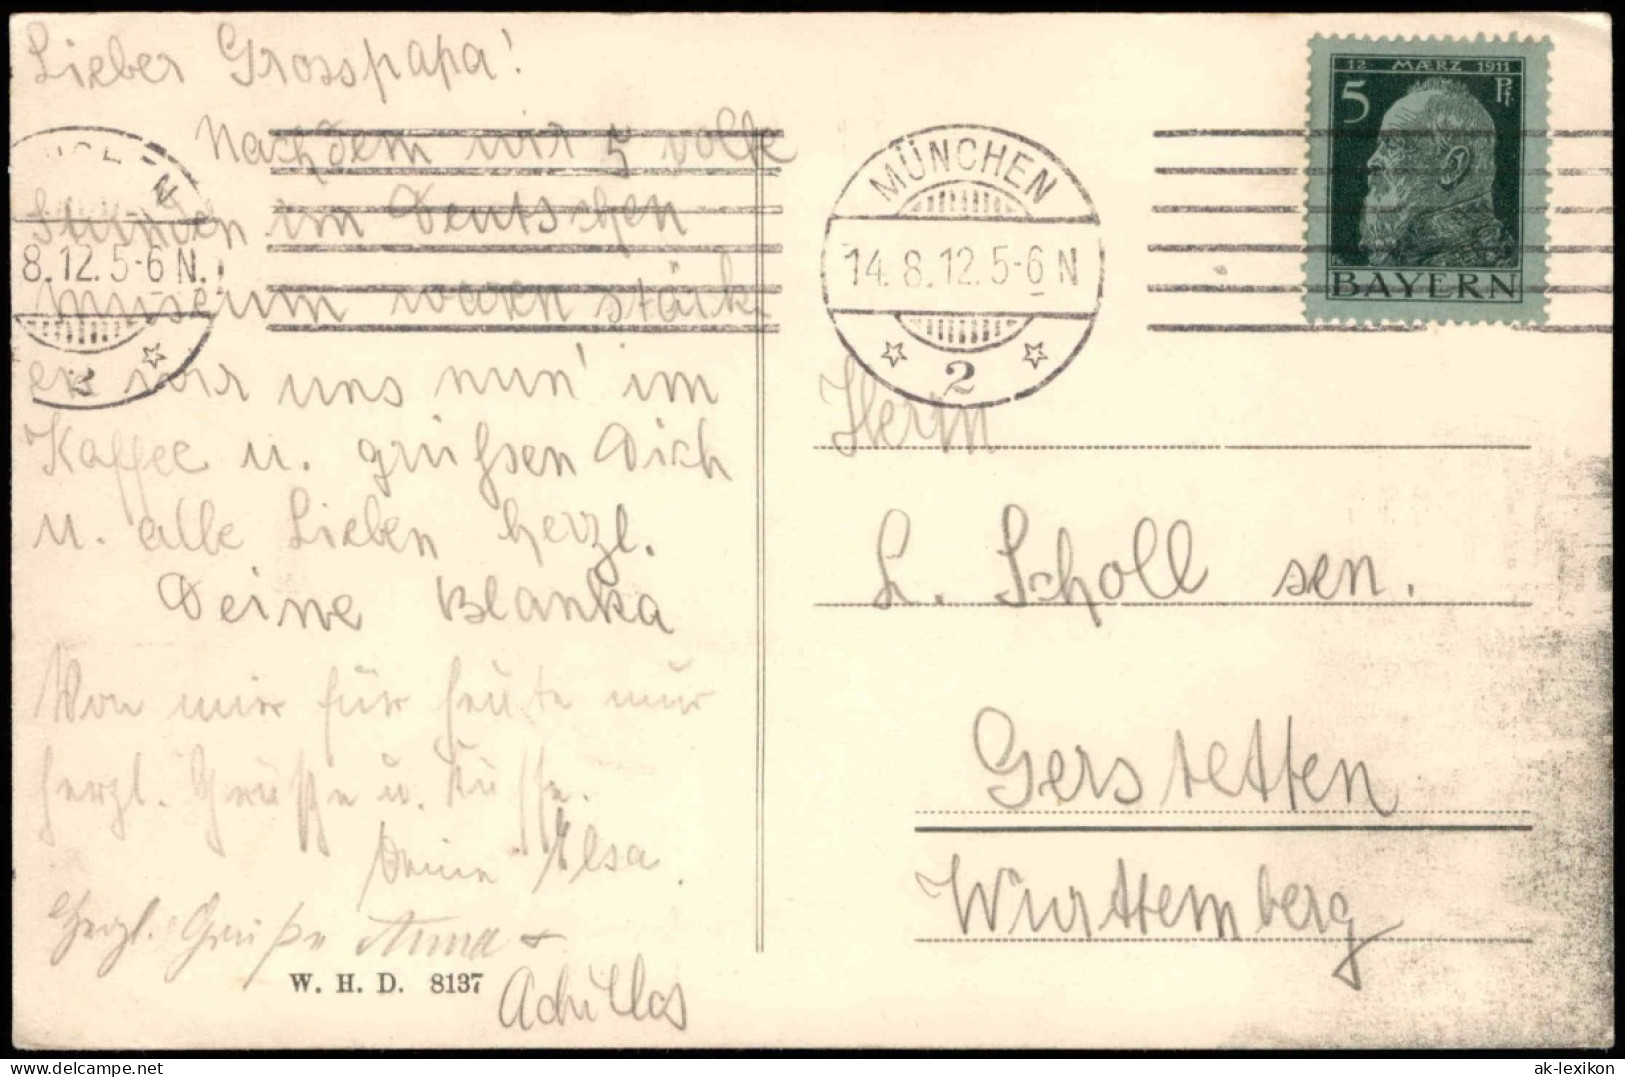 Lieber Grosspapa!
Nachdem wir 5 volle
Stunden im Deutschen
Museum waren stärk
en wir uns nun im
Kaffee u. grüßen Dich
u. alle Lieben herzl.
Deine Blanka
Von mir für heute nur
herzl. Grüße u. Küsse.
Deine Elsa.
Herzl. Grüße Anna +
Achilles
W. H. D. 8137
8.12.5-6 N.
2
MÜNCHEN
14.8.12.5-6 N
2
12. MÆRZ 1911
5 Pf.
BAYERN
Herrn
L. Scholl sen.
Gerstetten
Württemberg
ak-lexikon.de
ak-lexikon